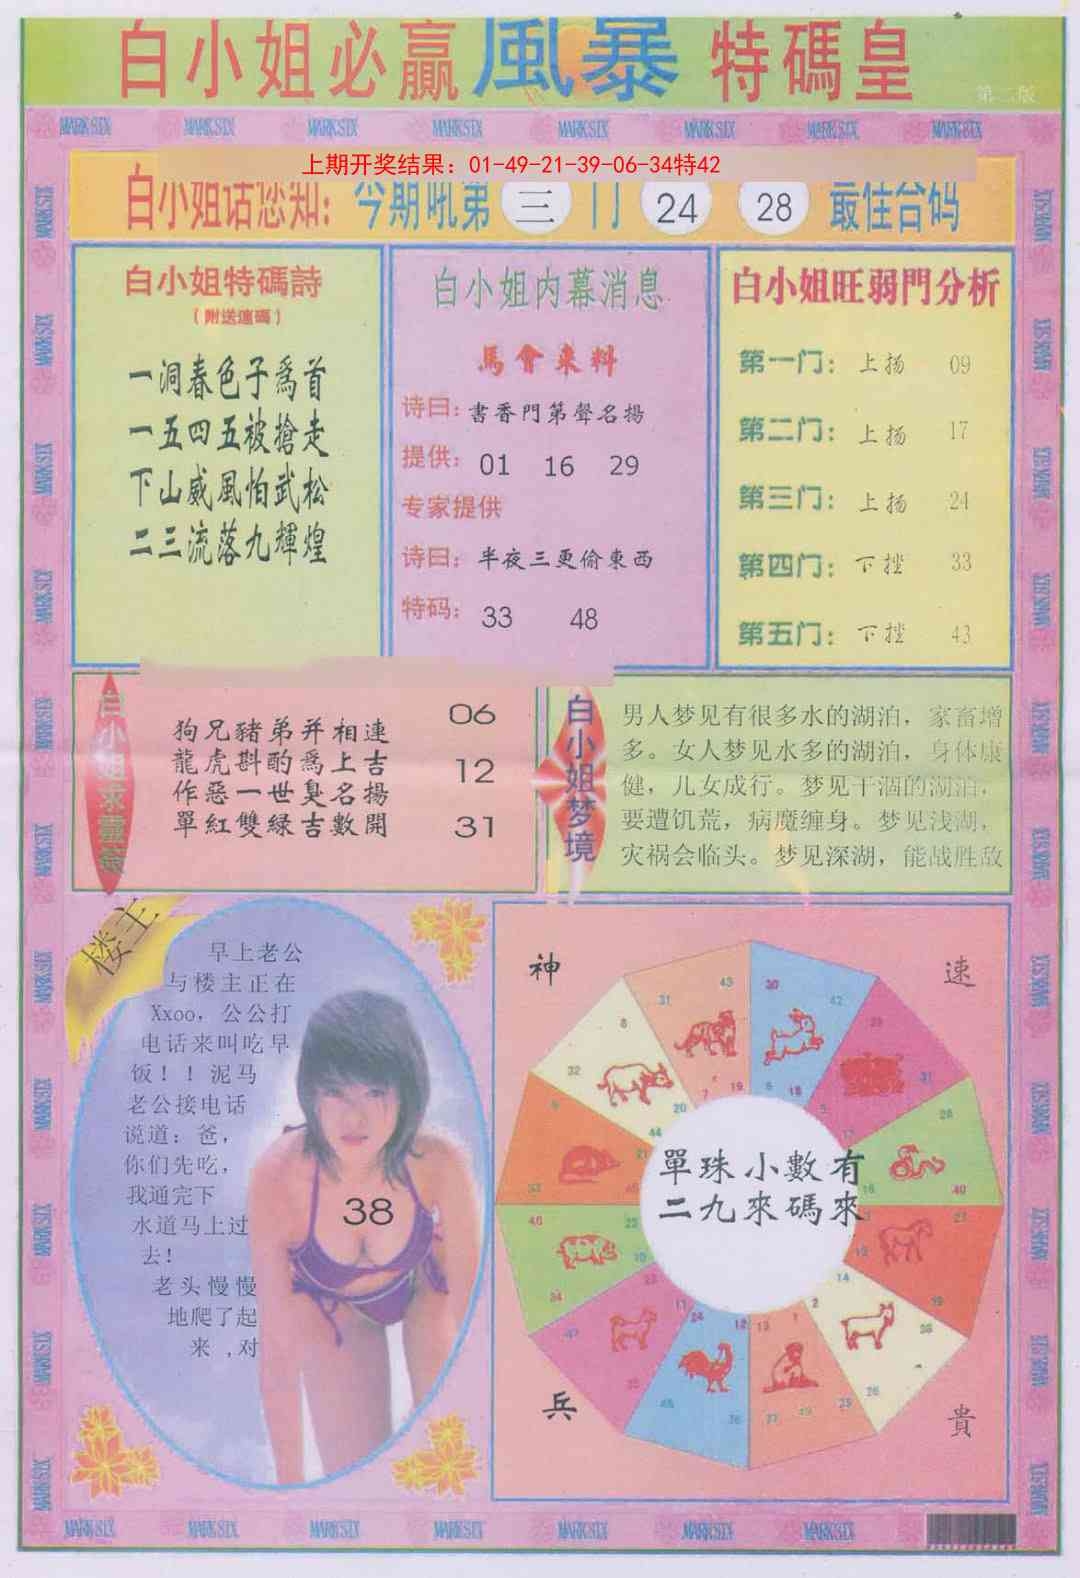 白小姐必赢風暴特碼皇
第二版
MARK SIX MARK SIX MARK SIX MARK SIX MARK SIX MARK SIX MARK SIX MARK SIX
上期开奖结果：01-49-21-39-06-34特42
白小姐话您知：今期吼第三门 24 28 最佳台码
白小姐特碼詩
（附送連碼）
一洞春色子爲首
一五四五被搶走
下山威風怕武松
二三流落九輝煌
白小姐内幕消息
馬會来料
诗曰：書香門第聲名揚
提供：01 16 29
专家提供
诗曰：半夜三更偷東西
特码：33 48
白小姐旺弱門分析
第一门：上扬 09
第二门：上扬 17
第三门：上扬 24
第四门：下挫 33
第五门：下挫 43
狗兄豬弟并相連
龍虎斟酌爲上吉
作惡一世臭名揚
單紅雙緑吉數開
06
12
31
白小姐梦境
男人梦见有很多水的湖泊，家畜增
多。女人梦见水多的湖泊，身体康
健，儿女成行。梦见干涸的湖泊，
要遭饥荒，病魔缠身。梦见浅湖，
灾祸会临头。梦见深湖，能战胜敌
楼主
早上老公
与楼主正在
Xxoo，公公打
电话来叫吃早
饭！！泥马
老公接电话
说道：爸，
你们先吃，
我通完下
水道马上过
去！
老头慢慢
地爬了起
来，对
38
神
速
兵
貴
單珠小數有
二九來碼來
MARK SIX MARK SIX MARK SIX MARK SIX MARK SIX MARK SIX MARK SIX